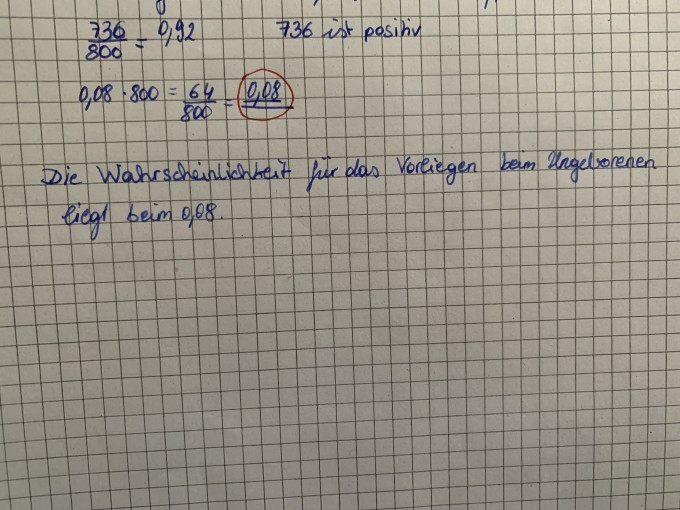 736/800 = 0,92 736 ist positiv
0,08 · 800 = 64/800 = 0,08
Die Wahrscheinlichkeit für das Vorliegen beim Ungeborenen
liegt beim 0,08.